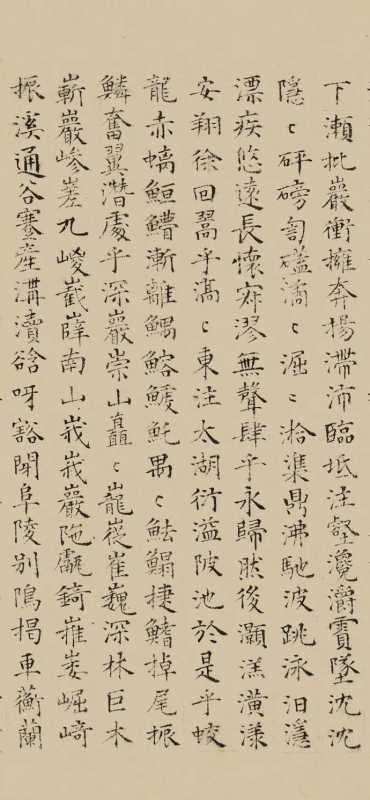 下瀨批巖衝擁奔揚滯沛臨坻注壑瀺灂霣墜沈沈
隱〻砰磅訇礚潏〻淈〻湁潗鼎沸馳波跳沫汩㶀
漂疾悠遠長懷寂漻無聲肆乎永歸然後灝溔潢漾
安翔徐回翯乎滈〻東注太湖衍溢陂池於是乎蛟
龍赤螭䱍䲛漸離鰅鰫鰬魠禺〻魼鰨揵鰭掉尾振
鱗奮翼潛處乎深巖崇山矗〻巃嵸崔巍深林巨木
嶄巖嵾嵳九嵕巀嶭南山峩峩巖陁甗錡嶊崣崛崎
振溪通谷蹇產溝瀆谽呀豁閉阜陵别隝揭車蘅蘭